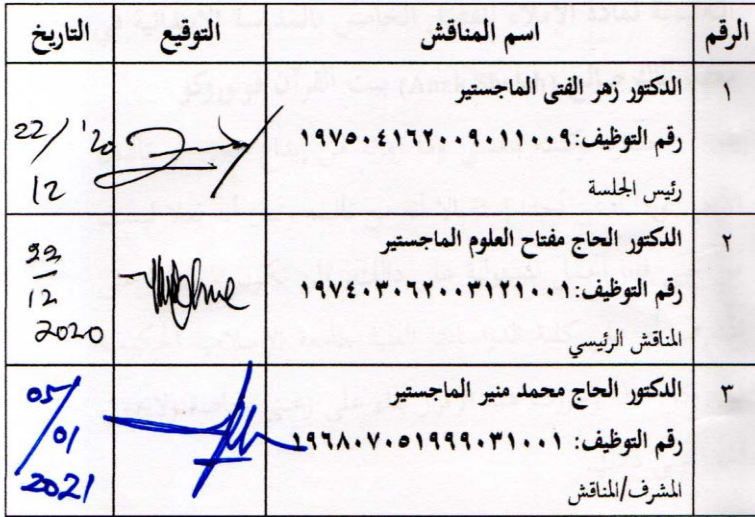 الرقم اسم المناقش التوقيع التاريخ
١ الدكتور زهر الفتى الماجستير
رقم التوظيف:١٩٧٥٠٤١٦٢٠٠٩٠١١٠٠٩
رئيس الجلسة
22/12 '20
٢ الدكتور الحاج مفتاح العلوم الماجستير
رقم التوظيف:١٩٧٤٠٣٠٦٢٠٠٣١٢١٠٠١
المناقش الرئيسي
22
12
2020
٣ الدكتور الحاج محمد منير الماجستير
رقم التوظيف: ١٩٦٨٠٧٠٥١٩٩٩٠٣١٠٠١
المشرف/المناقش
05/
01
2021